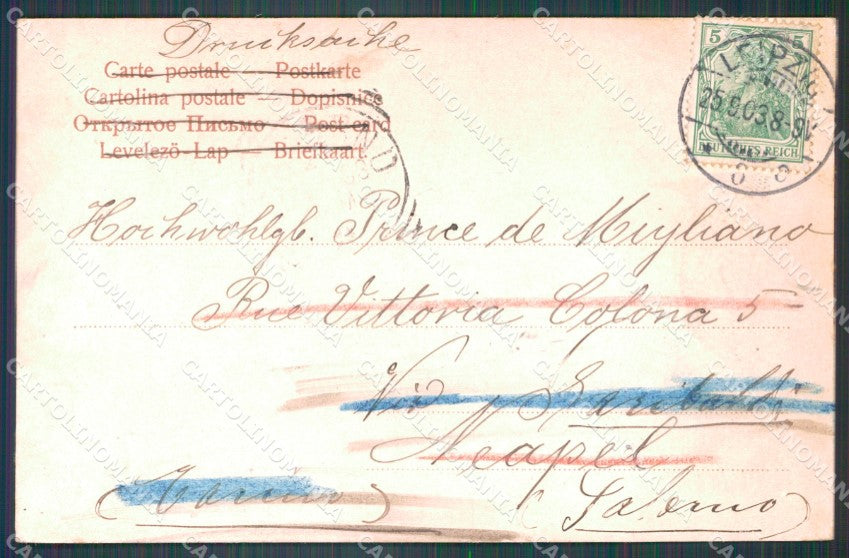 Drucksache
Carte postale — Postkarte
Cartolina postale — Dopisnice
Открытое Письмо — Post card
Levelező-Lap — Briefkaart
5
DEUTSCHES REICH
LEIPZIG
25.9.03.8-9V.
8
Hochwohlgb. Prince de Migliano
Rue Vittoria Colona 5
Via Garibaldi
Neapel
Salerno
CARTOLINOMANIA